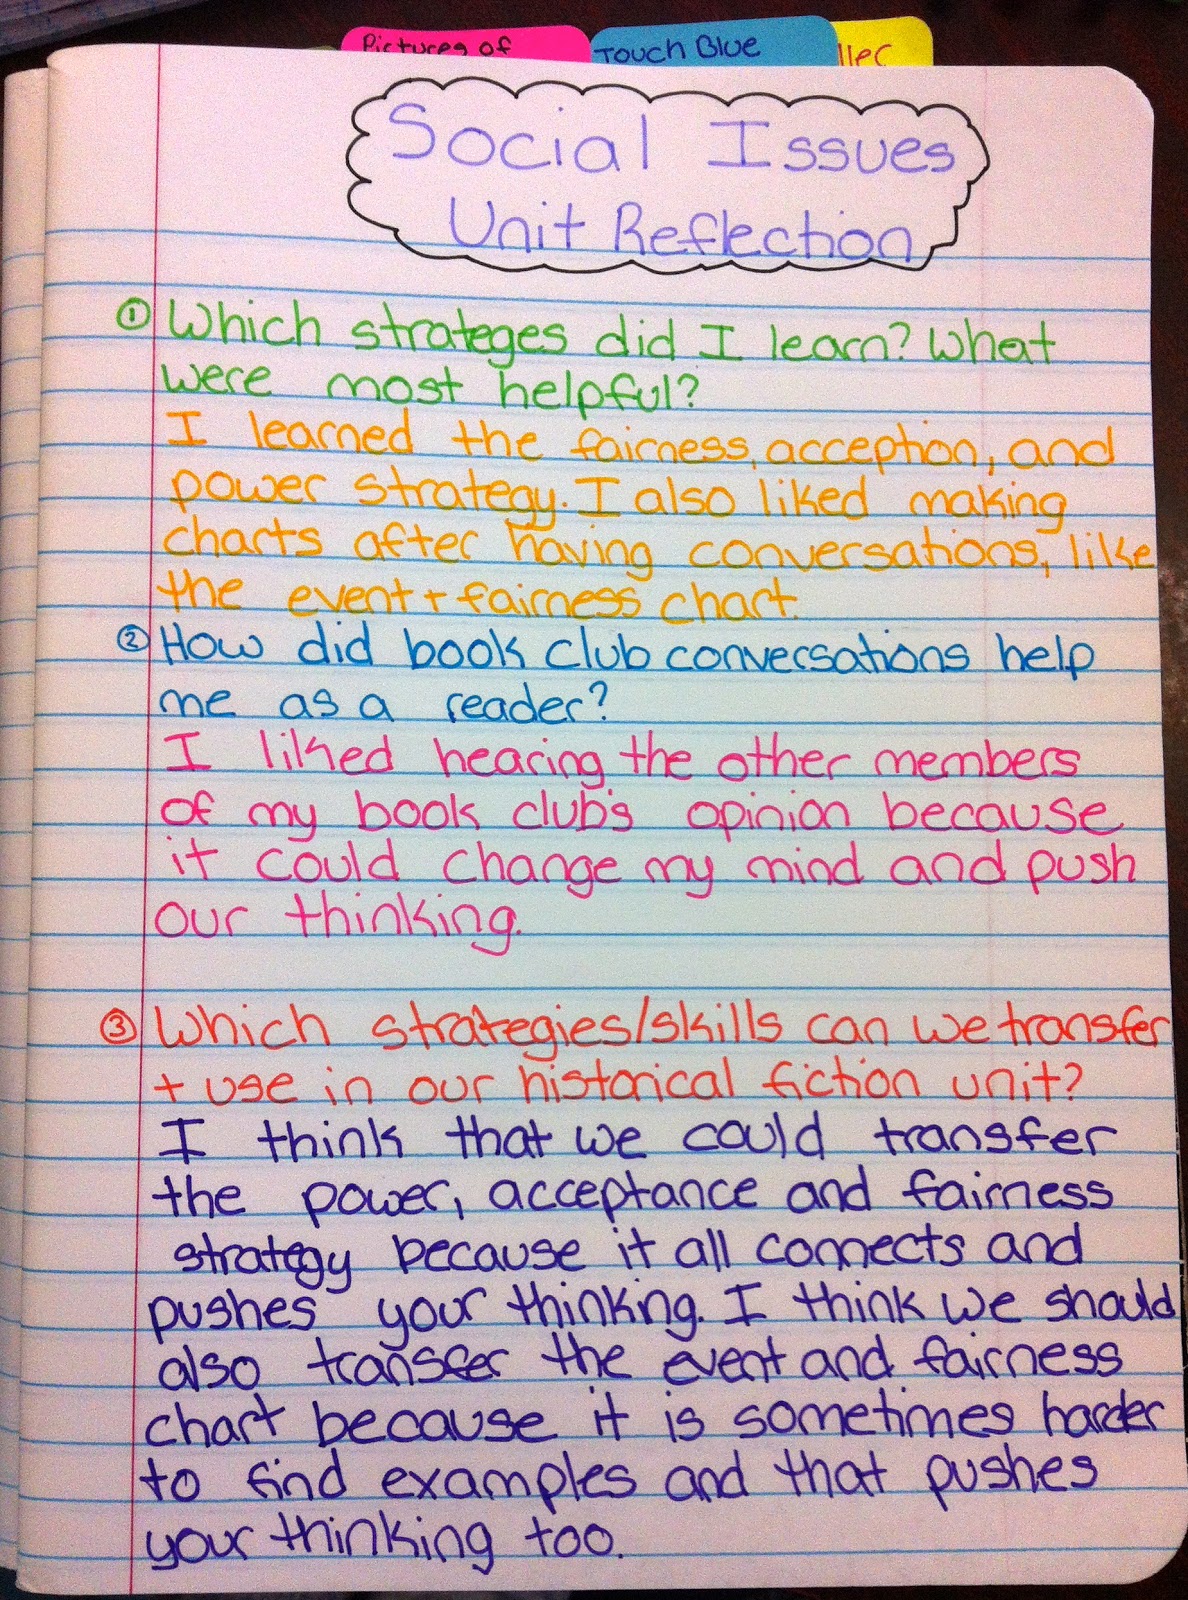 Pictures of
Touch Blue
ller
Social Issues
Unit Reflection
① Which strateges did I learn? What
were most helpful?
I learned the fairness, acception, and
power strategy. I also liked making
charts after having conversations, like
the event + fairness chart.
② How did book club conversations help
me as a reader?
I liked hearing the other members
of my book club's opinion because
it could change my mind and push
our thinking.
③ Which strategies/skills can we transfer
+ use in our historical fiction unit?
I think that we could transfer
the power, acceptance and fairness
strategy because it all connects and
pushes your thinking. I think we should
also transfer the event and fairness
chart because it is sometimes harder
to find examples and that pushes
your thinking too.